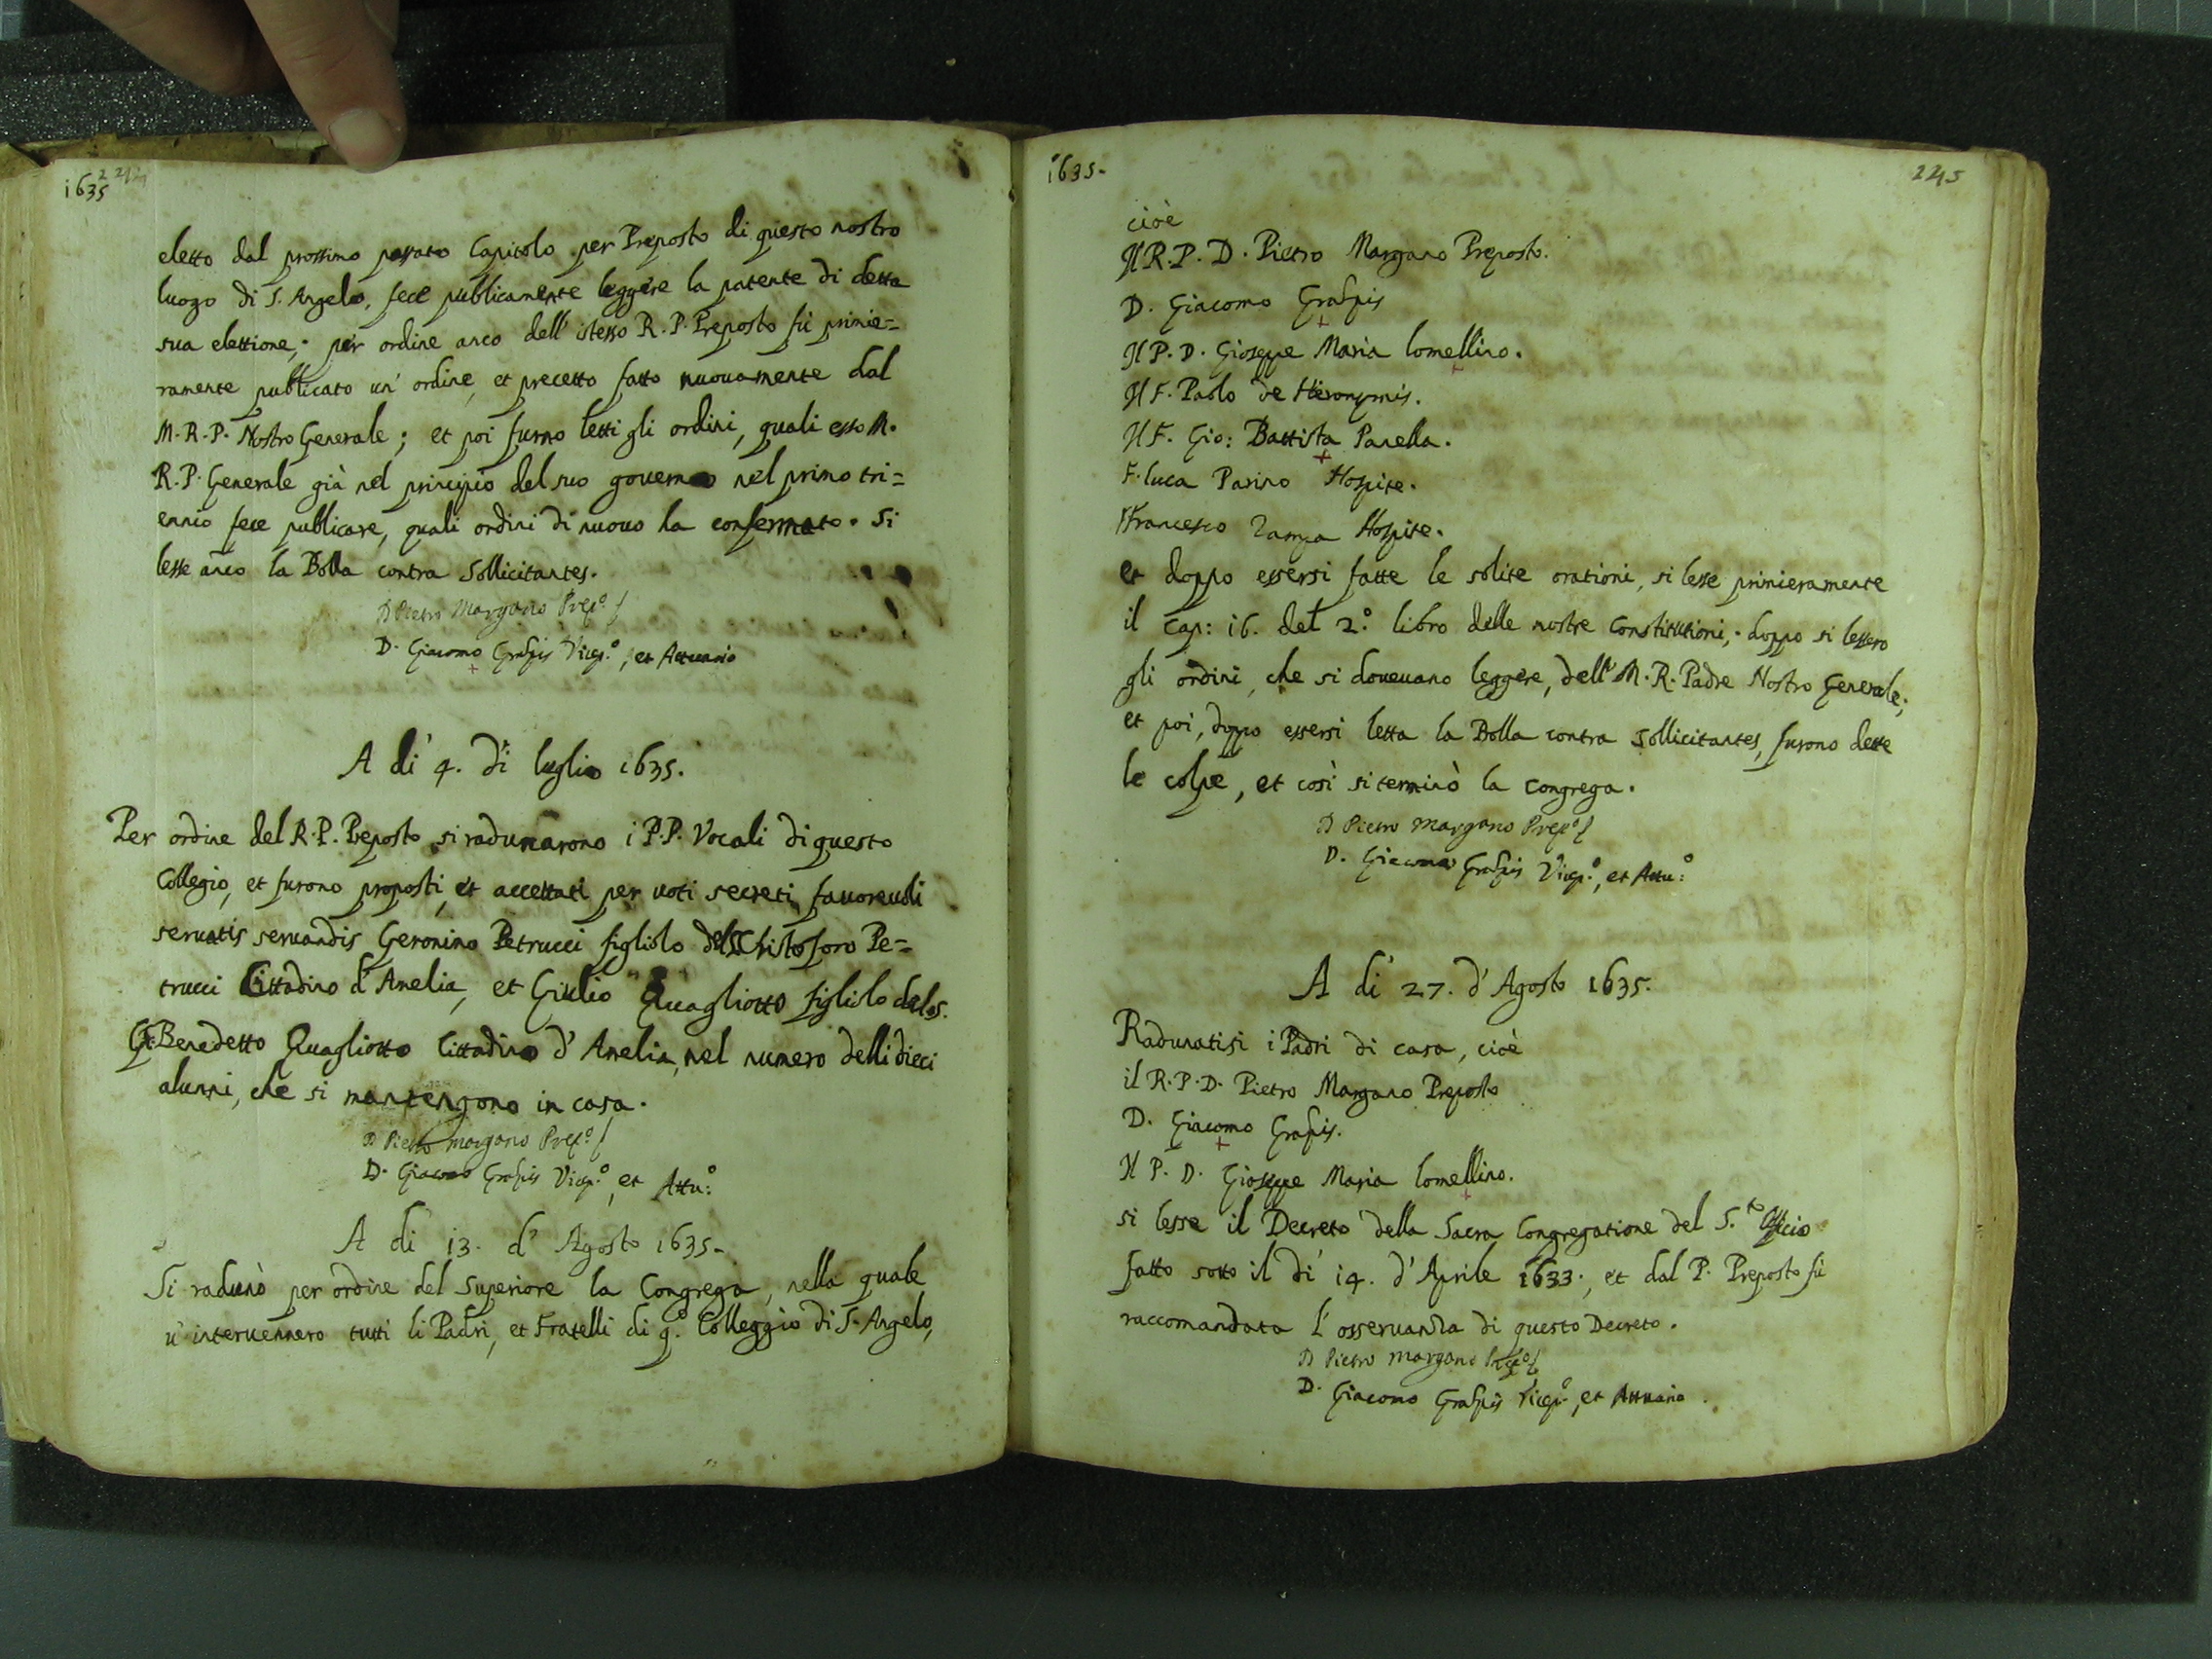 1635
eletto dal prossimo passato Capitolo per Preposto di questo nostro
luogo di S. Angelo, fece publicamente leggere la patente di detta
sua elettione; per ordine anco dell' istesso R. P. Preposto fù primie=
ramente publicato un' ordine, et precetto fatto nuouamente dal
M. R. P. Nostro Generale; et poi furno letti gli ordini, quali esso M.
R. P. Generale già nel principio del suo gouerno nel primo tri=
ennio fece publicare, quali ordini di nuouo ha confermato. Si
lesse anco la Bolla contra Sollicitantes.
D Pietro Margano Prep.º
D. Giacomo Graspis Vicep.º, et Attuario
A di 4. di luglio 1635.
Per ordine del R. P. Preposto si radunarono i P.P. Vocali di questo
Collegio, et furono proposti, et accettati per uoti secreti fauoreuoli
seruatis seruandis Geronimo Petrucci figliolo del Christoforo Pe=
trucci Cittadino d' Amelia, et Giulio Quagliotto figliolo del s.
Benedetto Quagliotto Cittadino d' Amelia, nel numero delli dieci
alunni, che si mantengono in casa.
D Pietro Margano Prep.º
D. Giacomo Graspis Vicep.º, et Attu.º
A di 13. d' Agosto 1635.
Si radunò per ordine del Superiore la Congrega, nella quale
u' interuennero tutti li Padri, et Fratelli di q.º Colleggio di S. Angelo,
1635.
245
cioè
Il R. P. D. Pietro Margano Preposto.
D. Giacomo Graspis
Il P. D. Gioseppe Maria lomellino.
Il F. Paolo de Hieronymis.
Il F. Gio: Battista Panella.
F. luca Parino Hospite.
F Francesco Zampa Hospite.
et doppo essersi fatte le solite orationi, si lesse primieramente
il Cap: 16. del 2.º libro delle nostre Constitutioni; doppo si lessero
gli ordini, che si doueuano leggere, dell' M. R. Padre Nostro Generale;
et poi, doppo essersi letta la Bolla contra sollicitantes, furono dette
le colpe, et così si terminò la Congrega.
D Pietro Margano Prep.º
D. Giacomo Graspis Vicep.º, et Attu.º
A di 27. d' Agosto 1635.
Radunatisi i Padri di casa, cioè
il R. P. D. Pietro Margano Preposto
D. Giacomo Graspis.
Il P. D. Gioseppe Maria lomellino.
si lesse il Decreto della Sacra Congregatione del S.to Officio
fatto sotto il di 14. d' Aprile 1633; et dal P. Preposto fù
raccomandata l' osseruanza di questo Decreto.
D Pietro Margano Prep.º
D. Giacomo Graspis Vicep.º, et Attuario.